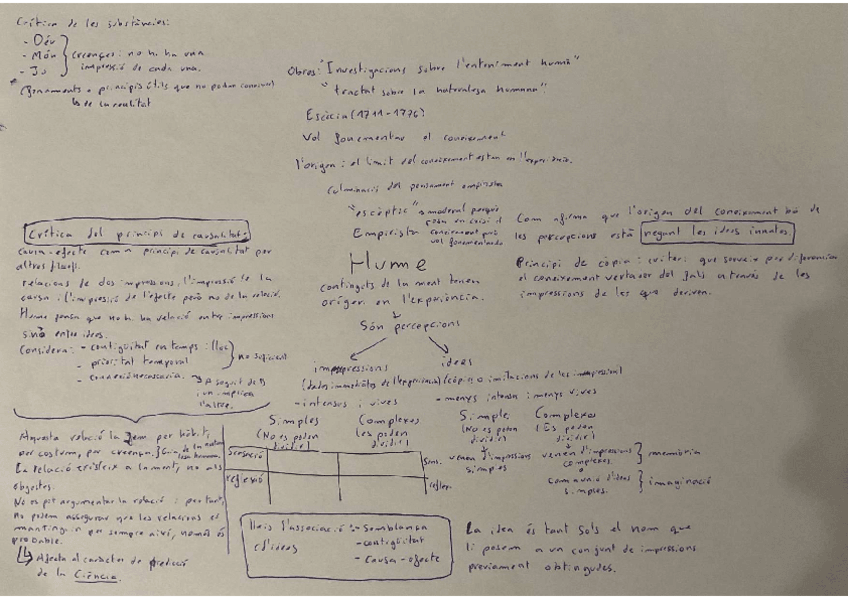 Crítica de les substàncies:
- Déu
- Món
- Jo
creences: no hi ha una
impressió de cada una.
de la realitat
Obres: "Investigacions sobre l'enteniment humà"
"tractat sobre la naturalesa humana"
Escòcia (1711-1776)
Vol fonamentar el coneixement
l'origen i el límit del coneixement estan en l'experiència.
Culminació del pensament empirista
"escèptic" moderat perquè
posa en crisi el
Empirista coneixement però
vol fonamentar-lo
Com afirma que l'origen del coneixement bé de
les percepcions està negant les idees innates.
Principi de còpia: criteri que serveix per diferenciar
el coneixement vertader del fals a través de les
impressions de les que deriven.
Hume
continguts de la ment tenen
origen en l'experiència.
Són percepcions
impressions
(dades immediates de l'experiència)
- intensos i vives
idees
(còpies o imitacions de les impressions)
- menys intenses i menys vives
Simples
(No es poden
dividir)
Complexos
(es poden
dividir)
Simple
(No es poden
dividir)
Complexos
(Es poden
dividir)
Sensació
reflexió
Sens.
reflex.
venen d'impressions
simples
venen d'impressions
complexes.
memòria
Combinació d'idees
simples.
imaginació
Crítica del principi de causalitat:
causa-efecte com a principi de causalitat per
altres filòsofs.
relacions de dos impressions, l'impressió de la
causa i l'impressió de l'efecte però no de la relació.
Hume pensa que no hi ha relació entre impressions
sinó entre idees.
Considera: - contigüitat en temps i lloc
- prioritat temporal
- connexió necessària.
no suficient
A seguit de B
i un implica
l'altre.
Aquesta relació la fem per hàbit,
per costum, per creença.
La relació existeix a la ment, no als
objectes.
No es pot argumentar la relació i per tant,
no podem assegurar que les relacions es
mantinguin per sempre així, només és
probable.
Afecta al caràcter de predicció
de la Ciència.
lleis d'associació
d'idees
- Semblança
- contigüitat
- Causa-efecte
La idea és tant sols el nom que
li posem a un conjunt de impressions
prèviament obtingudes.